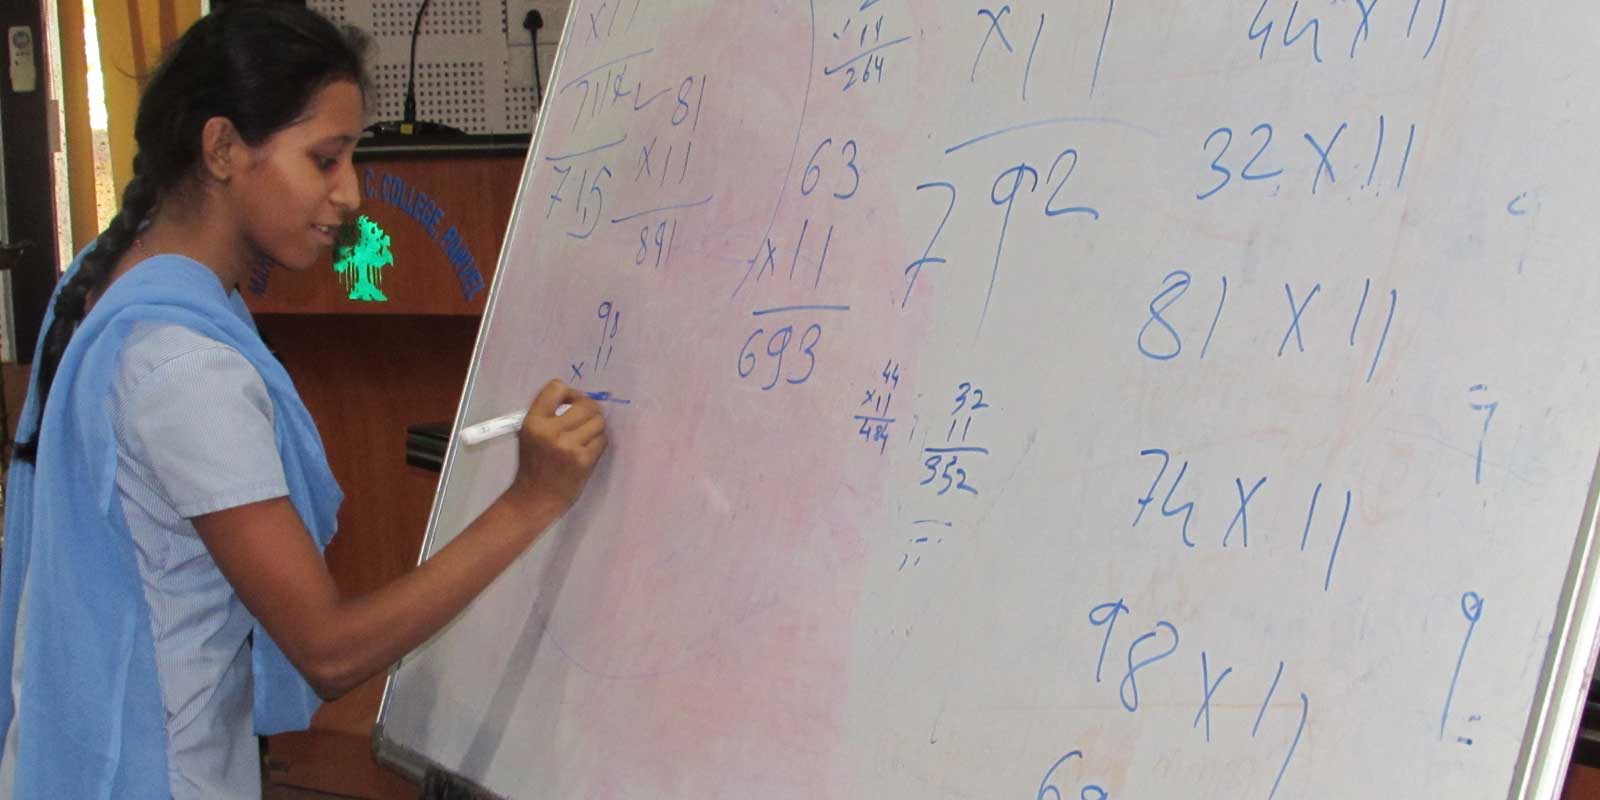 x11
715
81
x11
891
11
264
63
x11
693
98
x 11
44
x11
484
32
11
352
x11
792
44 x 11
32 x 11
81 x 11
74 x 11
98 x 11
C. COLLEGE PANVEL